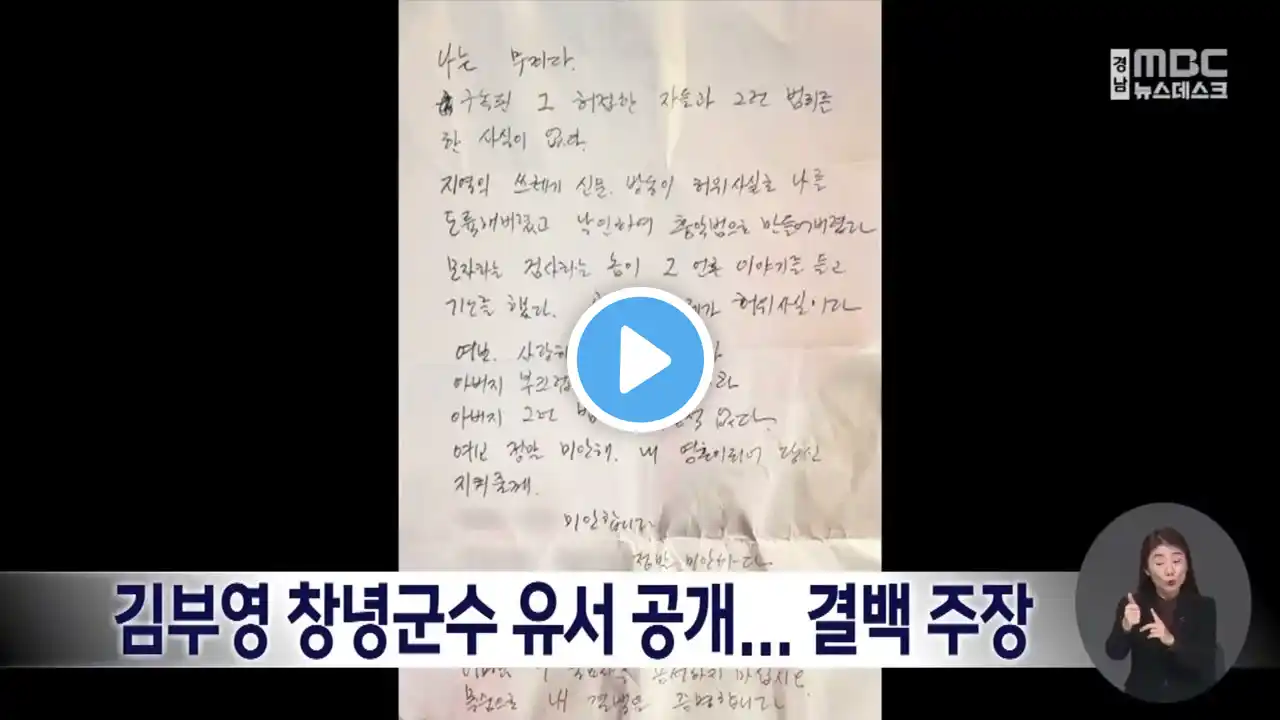 나는 무죄다.
구속된 그 허접한 자들과 그런 범죄를
한 사실이 없다.
지역의 쓰레기 신문. 방송이 허위사실로 나를
도륙해버렸고 낙인하여 흉악범으로 만들어버렸다
모자라는 검사라는 놈이 그 언론 이야기를 듣고
기소를 했다. 허위사실이다
사랑하
아버지 부끄럽
아버지 그런 범 없다.
여보 정말 미안해. 내 영혼이되어 당신
지켜줄게.
미안합니다
정말 미안하다
김부영 창녕군수 유서 공개... 결백 주장
용서하지 마십시오
죽음으로 내 결백을 증명합니다
경남 MBC
뉴스데스크